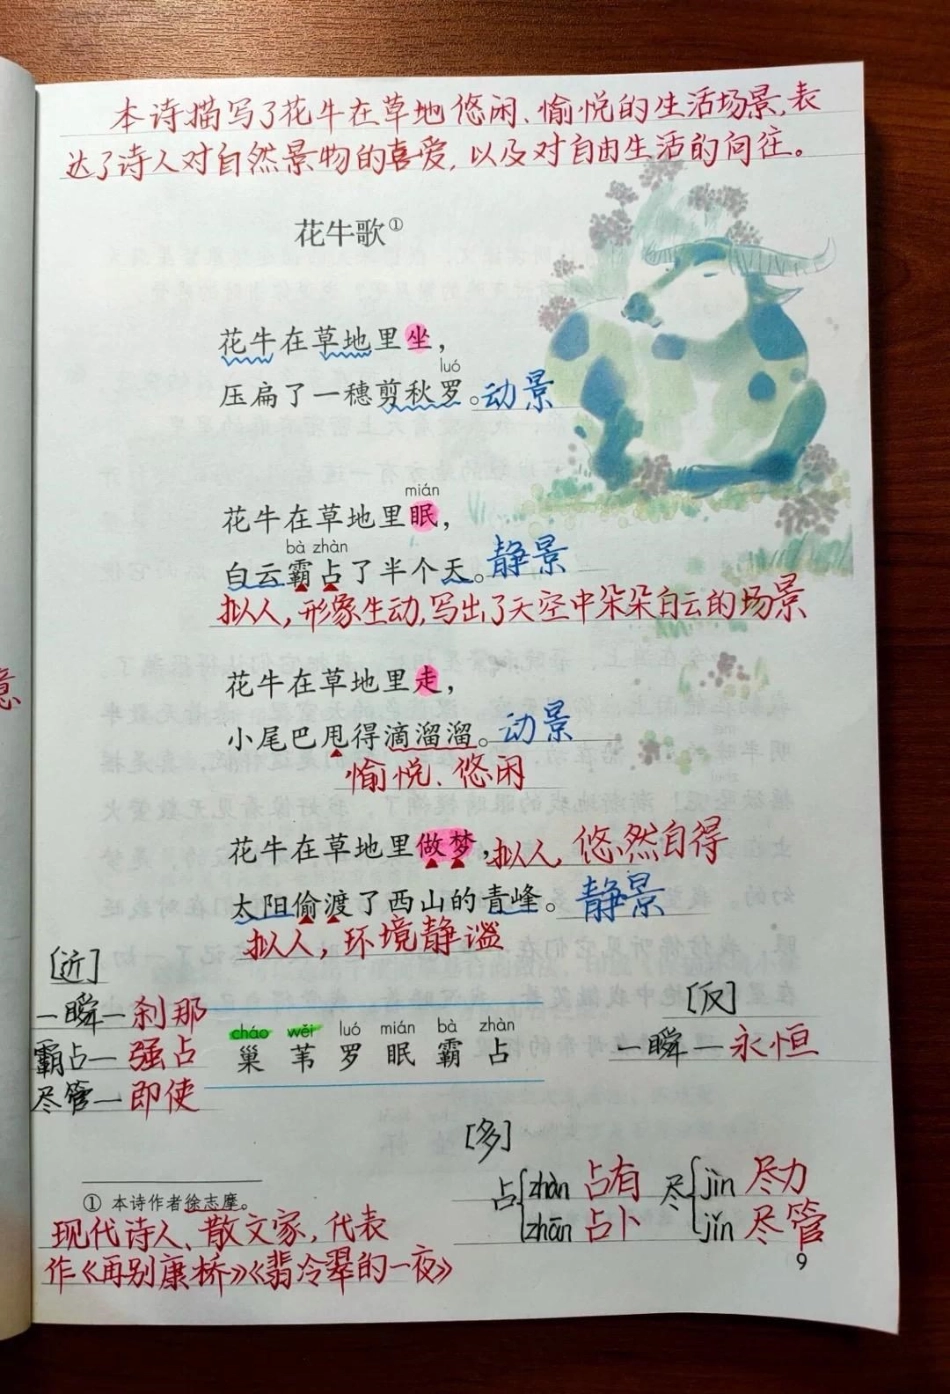 本诗描写了花牛在草地悠闲、愉悦的生活场景,表
达了诗人对自然景物的喜爱,以及对自由生活的向往。
花牛歌①
花牛在草地里坐，
luó
压扁了一穗剪秋罗。动景
mián
花牛在草地里眠，
bà zhàn
白云霸占了半个天。静景
拟人,形象生动,写出了天空中朵朵白云的场景
意
花牛在草地里走，
小尾巴甩得滴溜溜。动景
愉悦、悠闲
花牛在草地里做梦，拟人、悠然自得
太阳偷渡了西山的青峰。静景
拟人,环境静谧
[近]
一瞬—刹那
霸占—强占
尽管—即使
cháo wěi luó mián bà zhàn
巢 苇 罗 眠 霸 占
[反]
一瞬—永恒
[多]
占{zhàn 占有
zhān 占卜
尽{jìn 尽力
jǐn 尽管
① 本诗作者徐志摩。
现代诗人、散文家,代表
作《再别康桥》《翡冷翠的一夜》
9